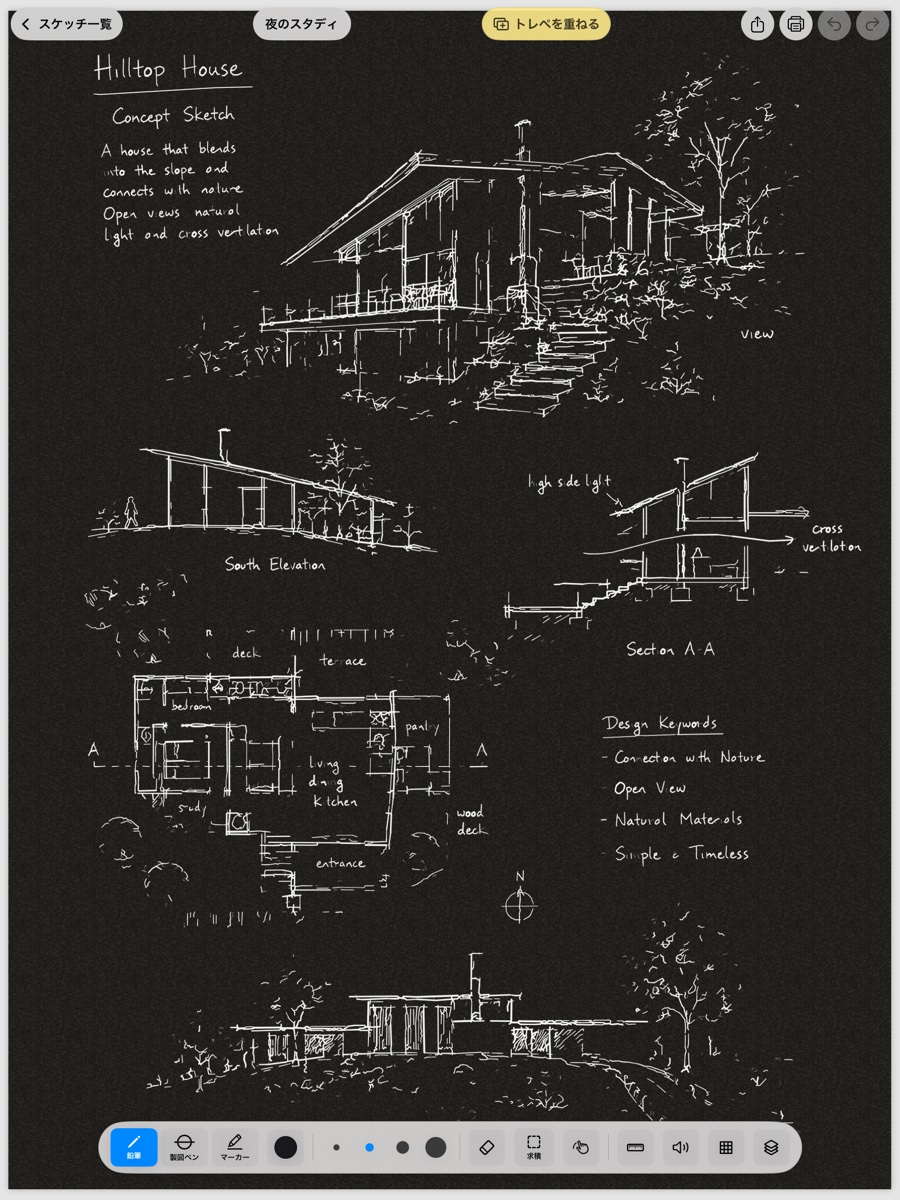 スケッチ一覧
夜のスタディ
トレペを重ねる
Hilltop House
Concept Sketch
A house that blends
into the slope and
connects with nature
Open views natural
light and cross ventilation
view
high side light
cross
ventilation
South Elevation
Section A-A
deck
terrace
bedroom
pantry
A
A
living
dining
kitchen
study
wood
deck
entrance
N
Design Keywords
- Connection with Nature
Open View
- Natural Materials
- Simple & Timeless
鉛筆
製図ペン
マーカー
求積